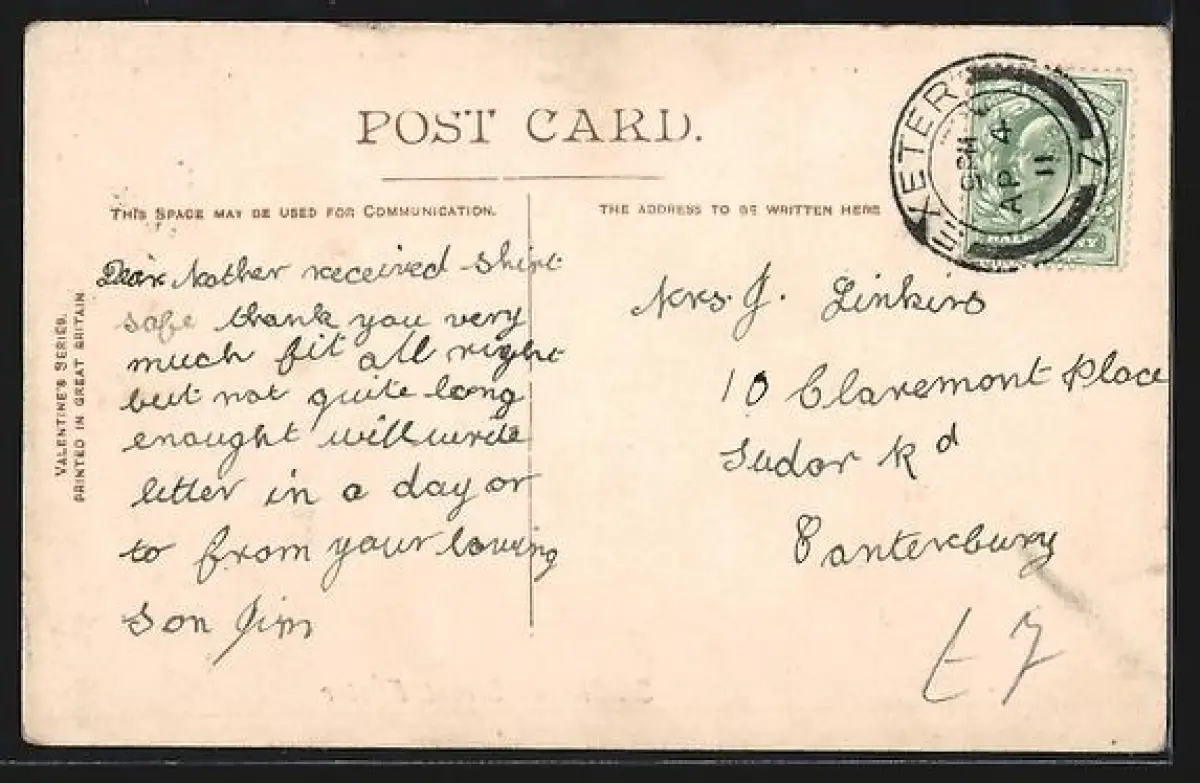 POST CARD.
THIS SPACE MAY BE USED FOR COMMUNICATION.
THE ADDRESS TO BE WRITTEN HERE
VALENTINE'S SERIES.
PRINTED IN GREAT BRITAIN
EXETER
AP 4
11
Dear Mother received shirt
safe thank you very
much fit all right
but not quite long
enought will write
letter in a day or
to from your loving
son Jim
Mrs. J. Linkins
10 Claremont Place
Tudor Rd
Canterbury